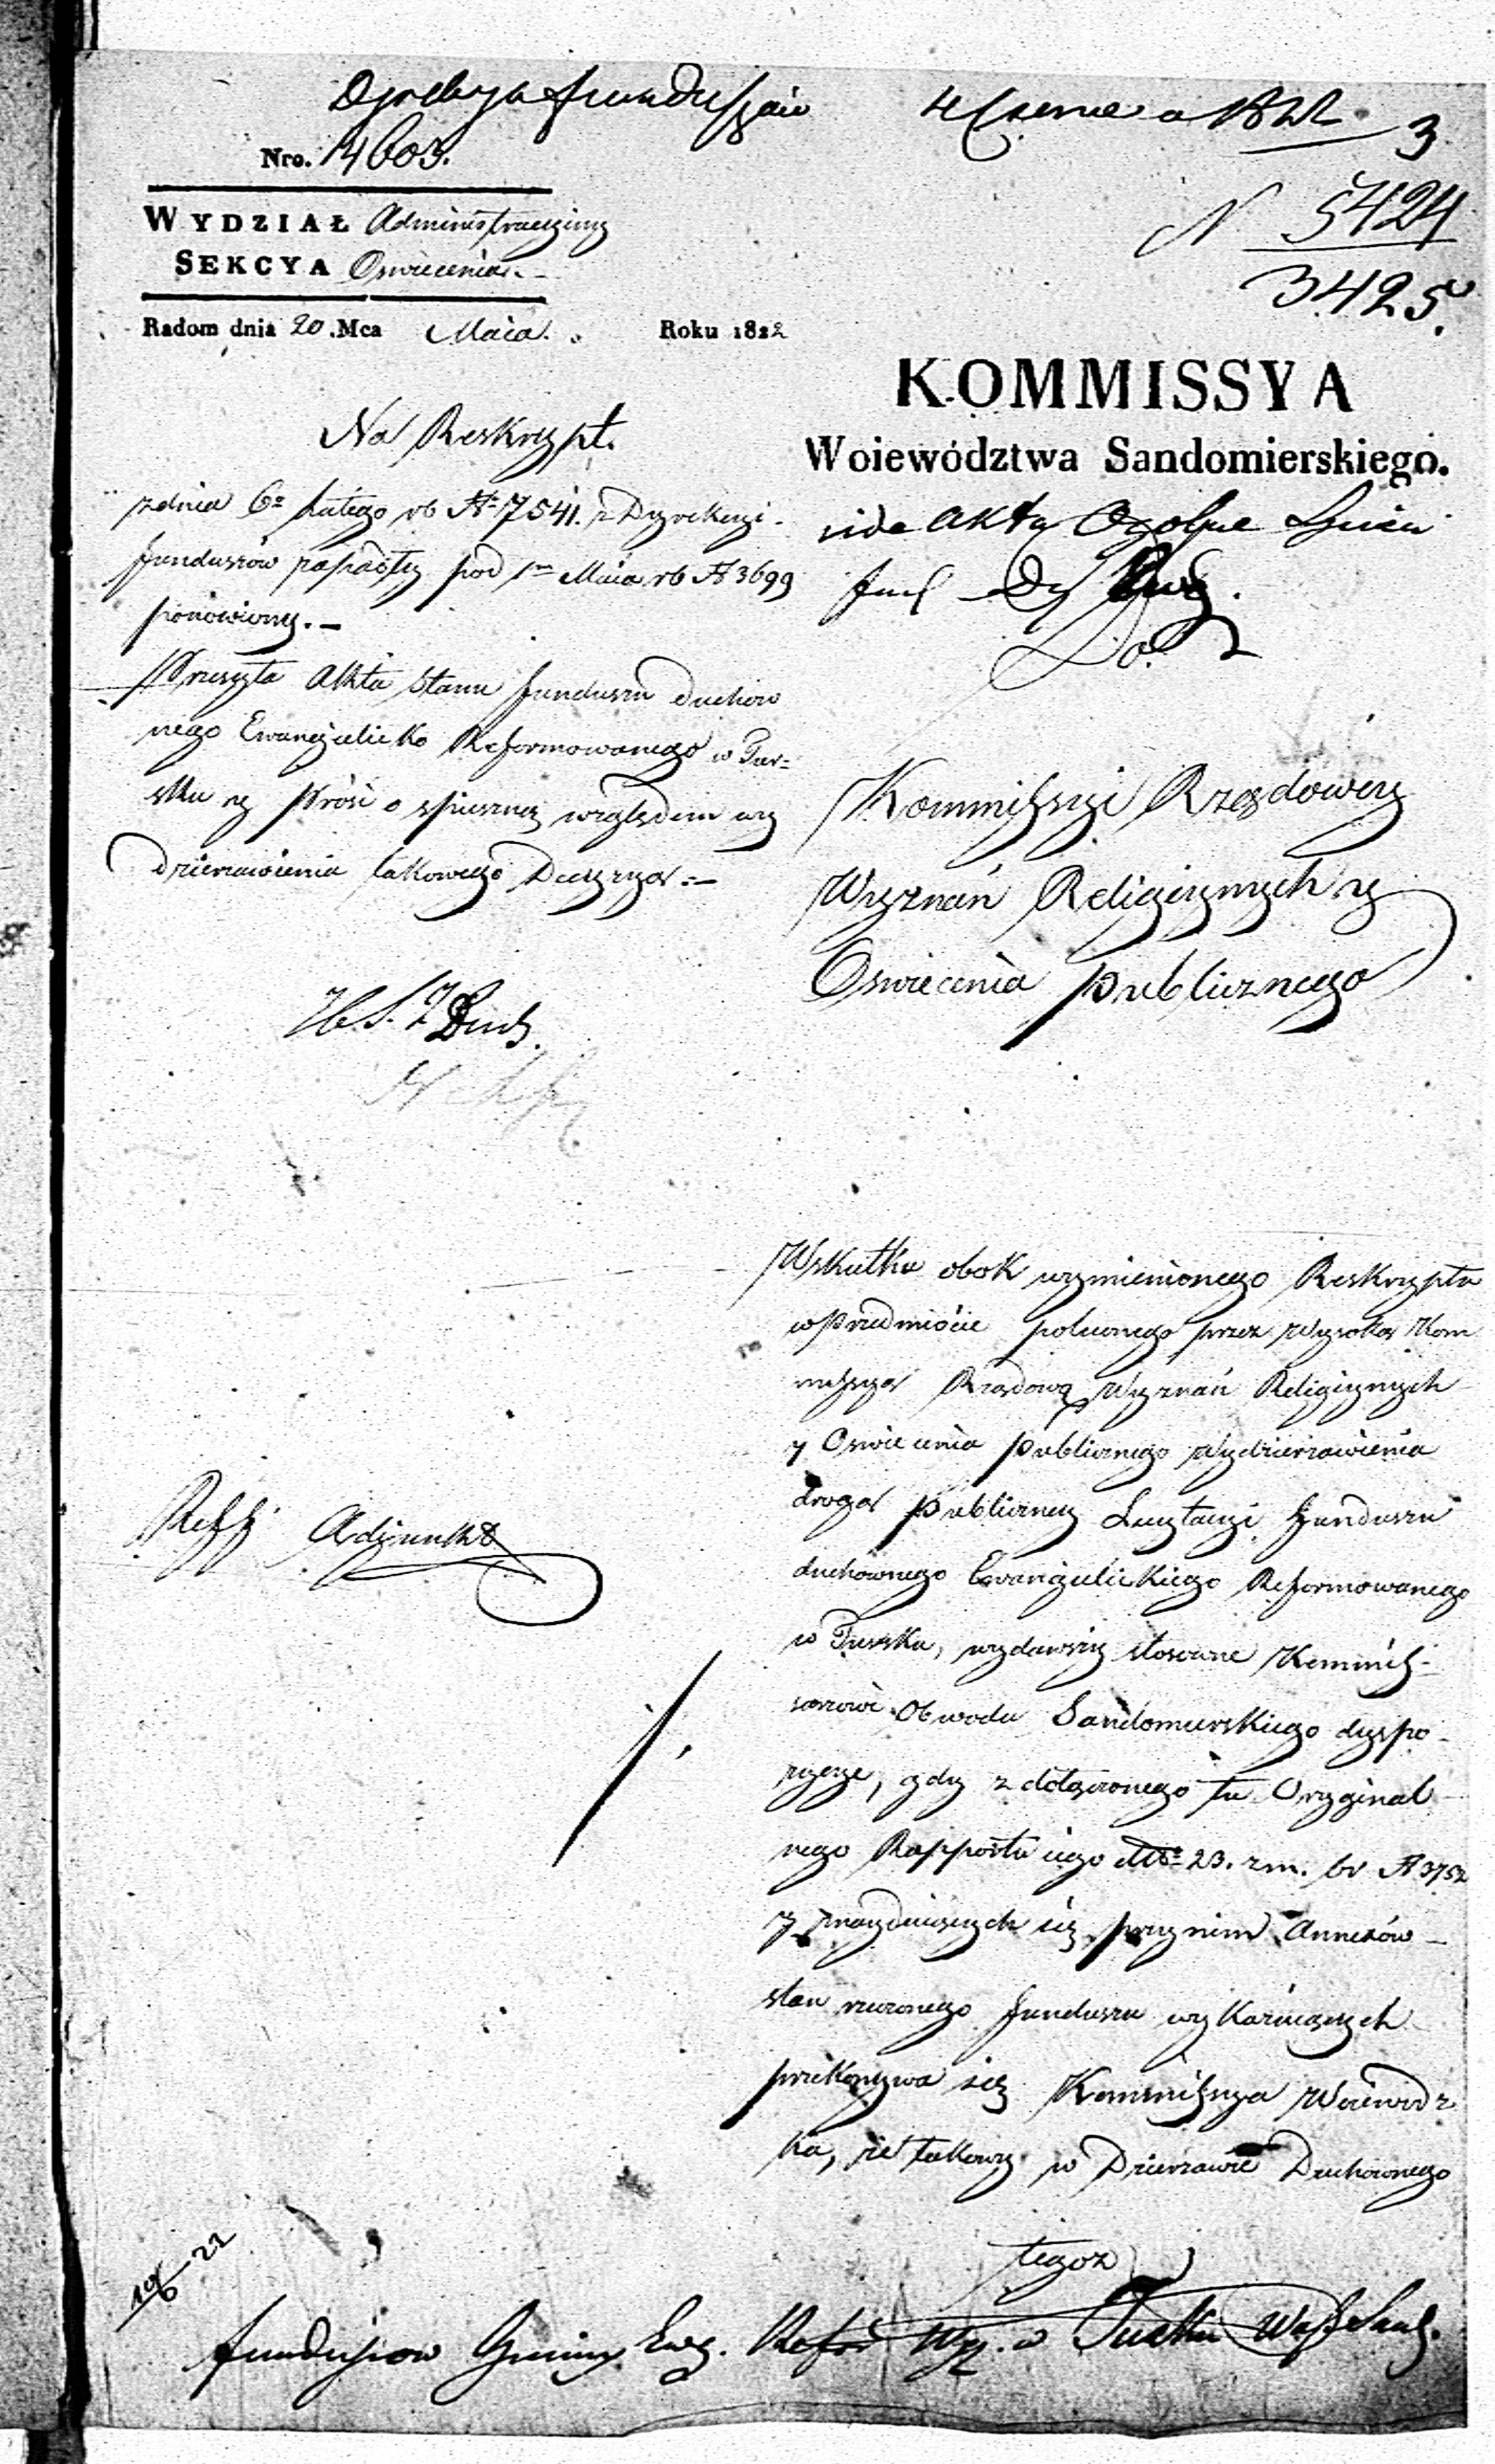 Dyrekcya Funduszów 4 Czerwca 1822 3
Nro. 14603.
N 5424
3425.
WYDZIAŁ Administracyiny
SEKCYA Oswiecenia.
Radom dnia 20. Mca Maia. Roku 1822
KOMMISSYA
Woiewództwa Sandomierskiego.
Na Reskrypt.
z dnia 6º Lutego rb Nº 7541. z Dyrekcyi
Funduszów zapadły pod 1m Maia rb N 3699
ponowiony. –
Przesyła Akta stanu funduszu duchow
nego Ewangelicko Reformowanego w Tur=
sku y prosi o spieszną względem wy
dzierzawienia takowego Decyzyą. –
vide Akta Ogolne
Do
Kommissyi Rządowey
Wyznań Religiynych y
Oswiecenia Publicznego
Wskutku obok wymienionego Reskryptu
w przedmiocie poleconego przez Wysoką Kom
missyą Rządową Wyznań Religiynych
y Oswiecenia Publicznego wydzierzawienia
drogą Publiczney Licytacyi Funduszu
duchownego Ewangelickiego Reformowanego
w Tursku, wydawszy stosowne Kommis-
sarzowi Obwodu Sandomierskiego dyspo-
zycye, gdy z dołączonego tu Oryginal-
nego Rapportu iego dtto 23. z m. br N 3752
y znayduiących się przy nim Annexów
stan rzeczonego funduszu wykazuiących
przekonywa się Kommissya Woiewodz
ka, że takowy w Dzierzawie Duchownego
tegoz
Reff Adjunkt
19/6 22
Funduszow Gminy Ewg. Refor Wyz. w Tursku Woj Sand.